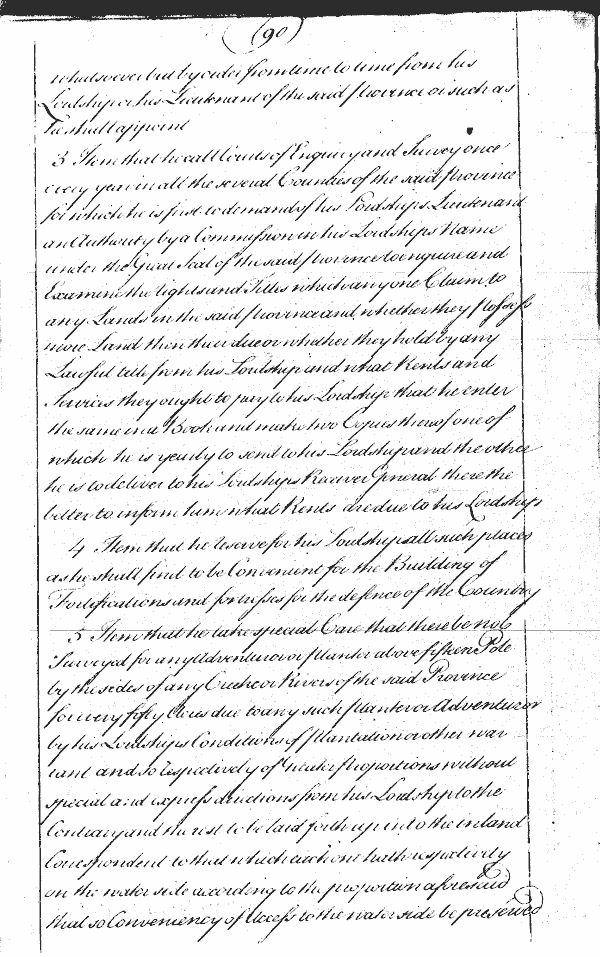 (90)
whatsoever but by order from time to time from his
Lordship or his Lieutenant of the said Province or such as
he shall appoint
3 Item that he call Courts of Enquiry and Survey once
every year in all the several Counties of the said Province
for which he is first to demand of his Lordships Lieutenant
an Authority by a Commission in his Lordships Name
under the Great Seal of the said Province to enquire and
Examine the rights and Titles which any one Claim to
any Lands in the said Province and whether they Possess
more Land then their due or whether they hold by any
Lawful title from his Lordship and what Rents and
Services they ought to pay to his Lordship that he enter
the same in a Book and make two Copies thereof one of
which he is yearly to send to his Lordship and the other
he is to deliver to his Lordships Receiver General there the
better to inform him what Rents are due to his Lordship
4 Item that he reserve for his Lordships all such places
as he shall find to be Convenient for the Building of
Fortifications and fortresses for the defence of the Country
5 Item that he take special Care that there be not
Surveyed for any Adventuror or Planter above fifteen Pole
by the sides of any Creek or Rivers of the said Provence
for every fifty Acres due to any such Planter or Adventuror
by his Lordships Conditions of Plantation or other war
rant and so respectively of Greater proportions without
special and express directions from his Lordship to the
Contrary and the rest to be laid forth up into the inland
Correspondent to that which each one hath respectively
on the water side according to the proportion aforesaid
that so Conveniency of Access to the water side be preserved